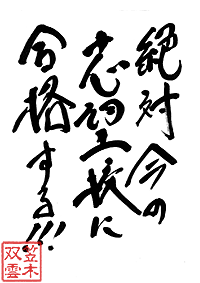 絶対今の
志望校に
合格する!!!
笠木
双雲